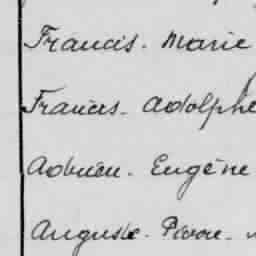 Francis. Marie
Francis. Adolphe
Adrien. Eugène
Auguste. Pierre.